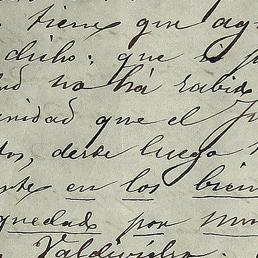 tiene que ag
dicho: que si p
ud no há sabido
unidad que el Ju
tos, desde luego
ste en los bien
quedado por mu
Valdivieso.